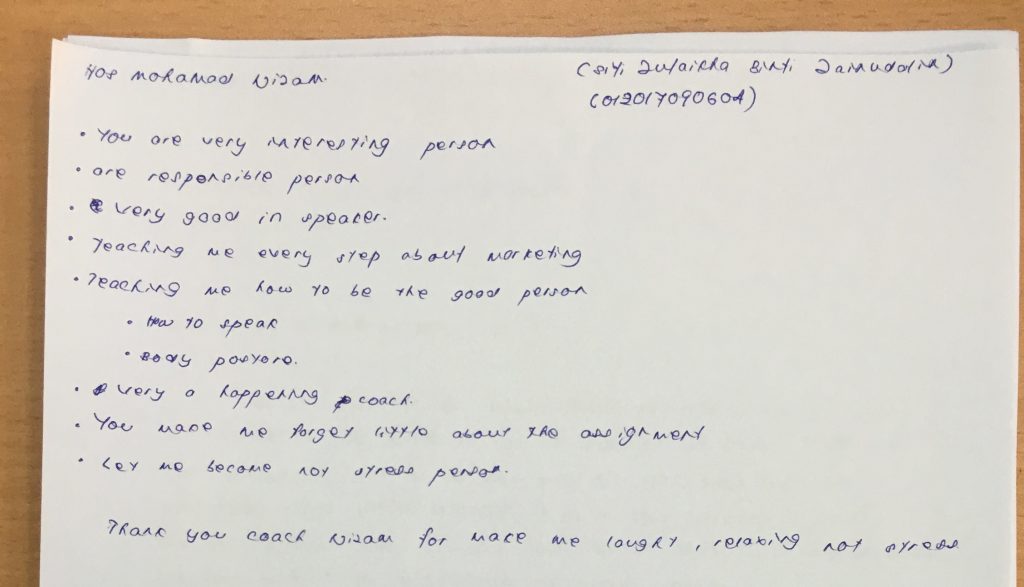 Hos Mohamad Nizam.
(Siti Zulaikha Binti Zainuddin)
(012017090604)
• You are very interesting person
• are responsible person
• Very good in speaker.
• Teaching me every step about marketing
• Teaching me how to be the good person
• How to speak
• Body posture.
• Very a happening coach.
• You make me forget little about the assignment
• Let me become not stress person.
Thank you coach Nizam for make me lought, relaxing not stress